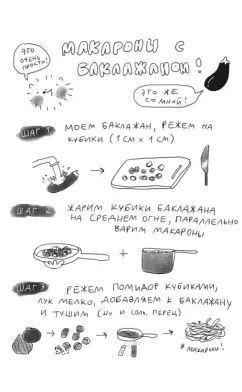 ЭТО
ОЧЕНЬ
ПРОСТО!
МАКАРОНЫ С
БАКЛАЖАНОМ!
ЭТО ЖЕ
СО МНОЙ!
ШАГ 1
МОЕМ БАКЛАЖАН, РЕЖЕМ НА
КУБИКИ (1 СМ х 1 СМ)
ШАГ 2
ЖАРИМ КУБИКИ БАКЛАЖАНА
НА СРЕДНЕМ ОГНЕ, ПАРАЛЛЕЛЬНО
ВАРИМ МАКАРОНЫ
ШАГ 3
РЕЖЕМ ПОМИДОР КУБИКАМИ,
ЛУК МЕЛКО, ДОБАВЛЯЕМ К БАКЛАЖАНУ
И ТУШИМ (
И СОЛЬ, ПЕРЕЦ)
В МАКАРОНЫ!